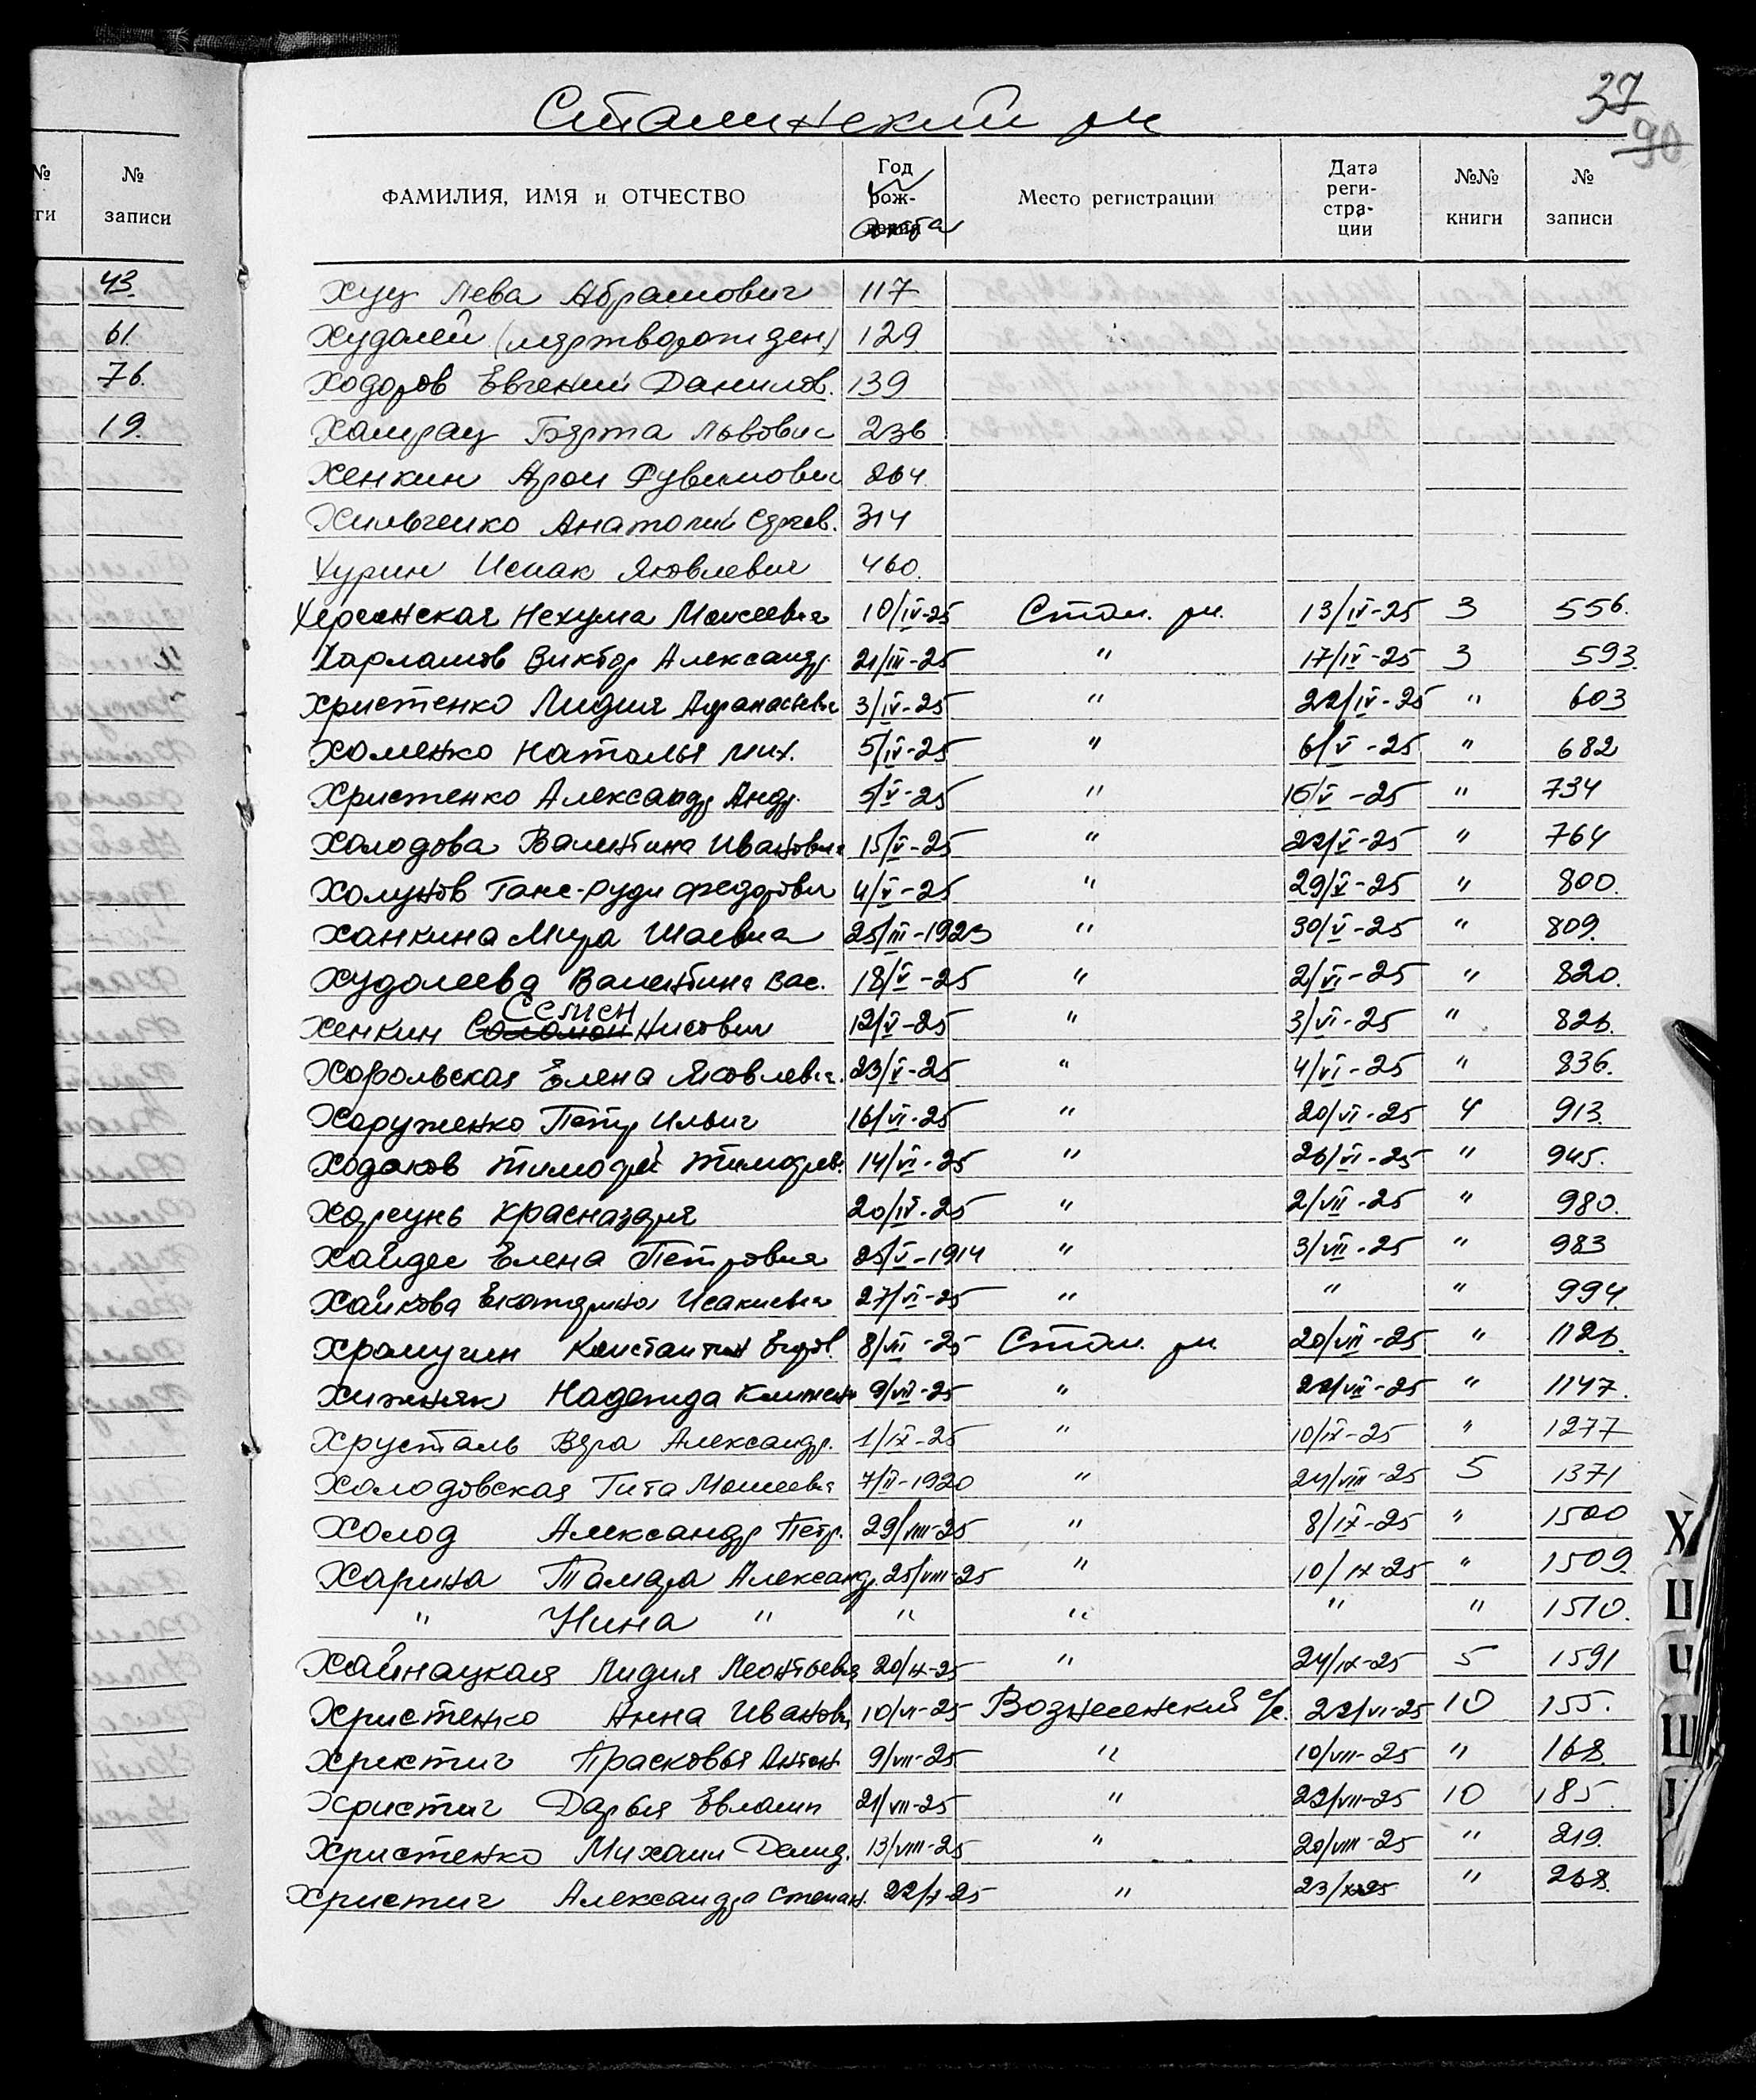 37
90
Сталинский рн
№ записи
ФАМИЛИЯ, ИМЯ и ОТЧЕСТВО Год рож- акта Место регистрации Дата реги- стра- ции №№ книги № записи
43.
61.
76.
19.
Хуц Лева Абрамович 117
Худолей (мертворожден) 129
Ходоров Евгений Данилов. 139
Хамрац Берта Львович 236
Хенкин Арон Рувимович 264.
Хильченко Анатолий Сергев. 314
Хурин Исаак Яковлевич 460.
Херсонская Нехума Моисеевна 10/IV-25 Стал. рн. 13/IV-25 3 556.
Харламов Виктор Александр. 21/III-25 " 17/IV-25 3 593.
Христенко Лидия Афанасьевн 3/IV-25 " 22/IV-25 " 603
Хоменко Наталья Мих. 5/IV-25 " 6/V-25 " 682
Христенко Александр Андр. 5/V-25 " 16/V-25 " 734
Холодова Валентина Ивановна 15/V-25 " 22/V-25 " 764
Холунов Ганс-Руди Федорович 4/V-25 " 29/V-25 " 800.
Ханкина Мира Шаевна 25/III-1923 " 30/V-25 " 809.
Худолеева Валентина Вас. 18/V-25 " 2/VI-25 " 820.
Хенкин Соломон Семен Нисович 12/V-25 " 3/VI-25 " 826.
Хорольская Елена Яковлевна. 23/V-25 " 4/VI-25 " 836.
Харуженко Петр Ильич 16/VI-25 " 20/VI-25 4 913.
Ходаков Тимофей Тимофев. 14/VI-25 " 26/VI-25 " 945.
Харсунь Красназаря 20/IV-25 " 2/VII-25 " 980.
Хайдес Елена Петровна 25/V-1914 " 3/VII-25 " 983
Хайкова Екатерина Исакиевна 27/VI-25 " " " 994.
Храмугин Константин Егоров. 8/VII-25 Стал. рн 20/VII-25 " 1126.
Хижняк Надежда Климент 9/VII-25 " 22/VII-25 " 1147.
Хрусталь Вера Александр. 1/IX-25 " 10/IX-25 " 1277
Холодовская Гита Моисеевна 7/II-1920 " 24/VIII-25 5 1371
Холод Александр Петр. 29/VIII-25 " 8/IX-25 " 1500
Харина Тамара Александ. 25/VIII-25 " 10/IX-25 " 1509.
" Нина " " " " " 1510.
Хайнацкая Лидия Леонтьевна 20/IX-25 " 24/IX-25 5 1591
Христенко Анна Ивановн 10/VI-25 Вознесенский с/с. 22/VI-25 10 155.
Христич Прасковья Антон. 9/VII-25 " 10/VII-25 " 168.
Христич Дарья Евламп 21/VII-25 " 22/VII-25 10 185.
Христенко Михаил Демид. 13/VIII-25 " 20/VIII-25 " 219.
Христич Александра Степан. 22/X-25 " 23/X-25 " 268.
Х
Ц
Ч
Ш